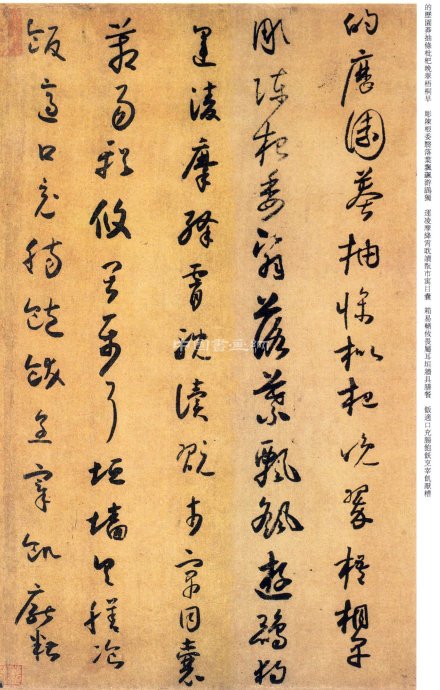 的歷園莽抽條枇杷晚翠梧桐早　彫陳根委翳落葉飄颻游鵾獨　運凌摩絳霄耽讀翫市寓目囊　箱易輶攸畏屬耳垣牆具膳餐　飯適口充腸飽飫烹宰飢厭糟
的歷園莽抽條枇杷晚翠梧桐早
彫陳根委翳落葉飄颻遊鵾獨
運凌摩絳霄耽讀翫市寓目囊
箱易輶攸畏屬耳垣牆具膳餐
飯適口充腸飽飫烹宰飢厭糟